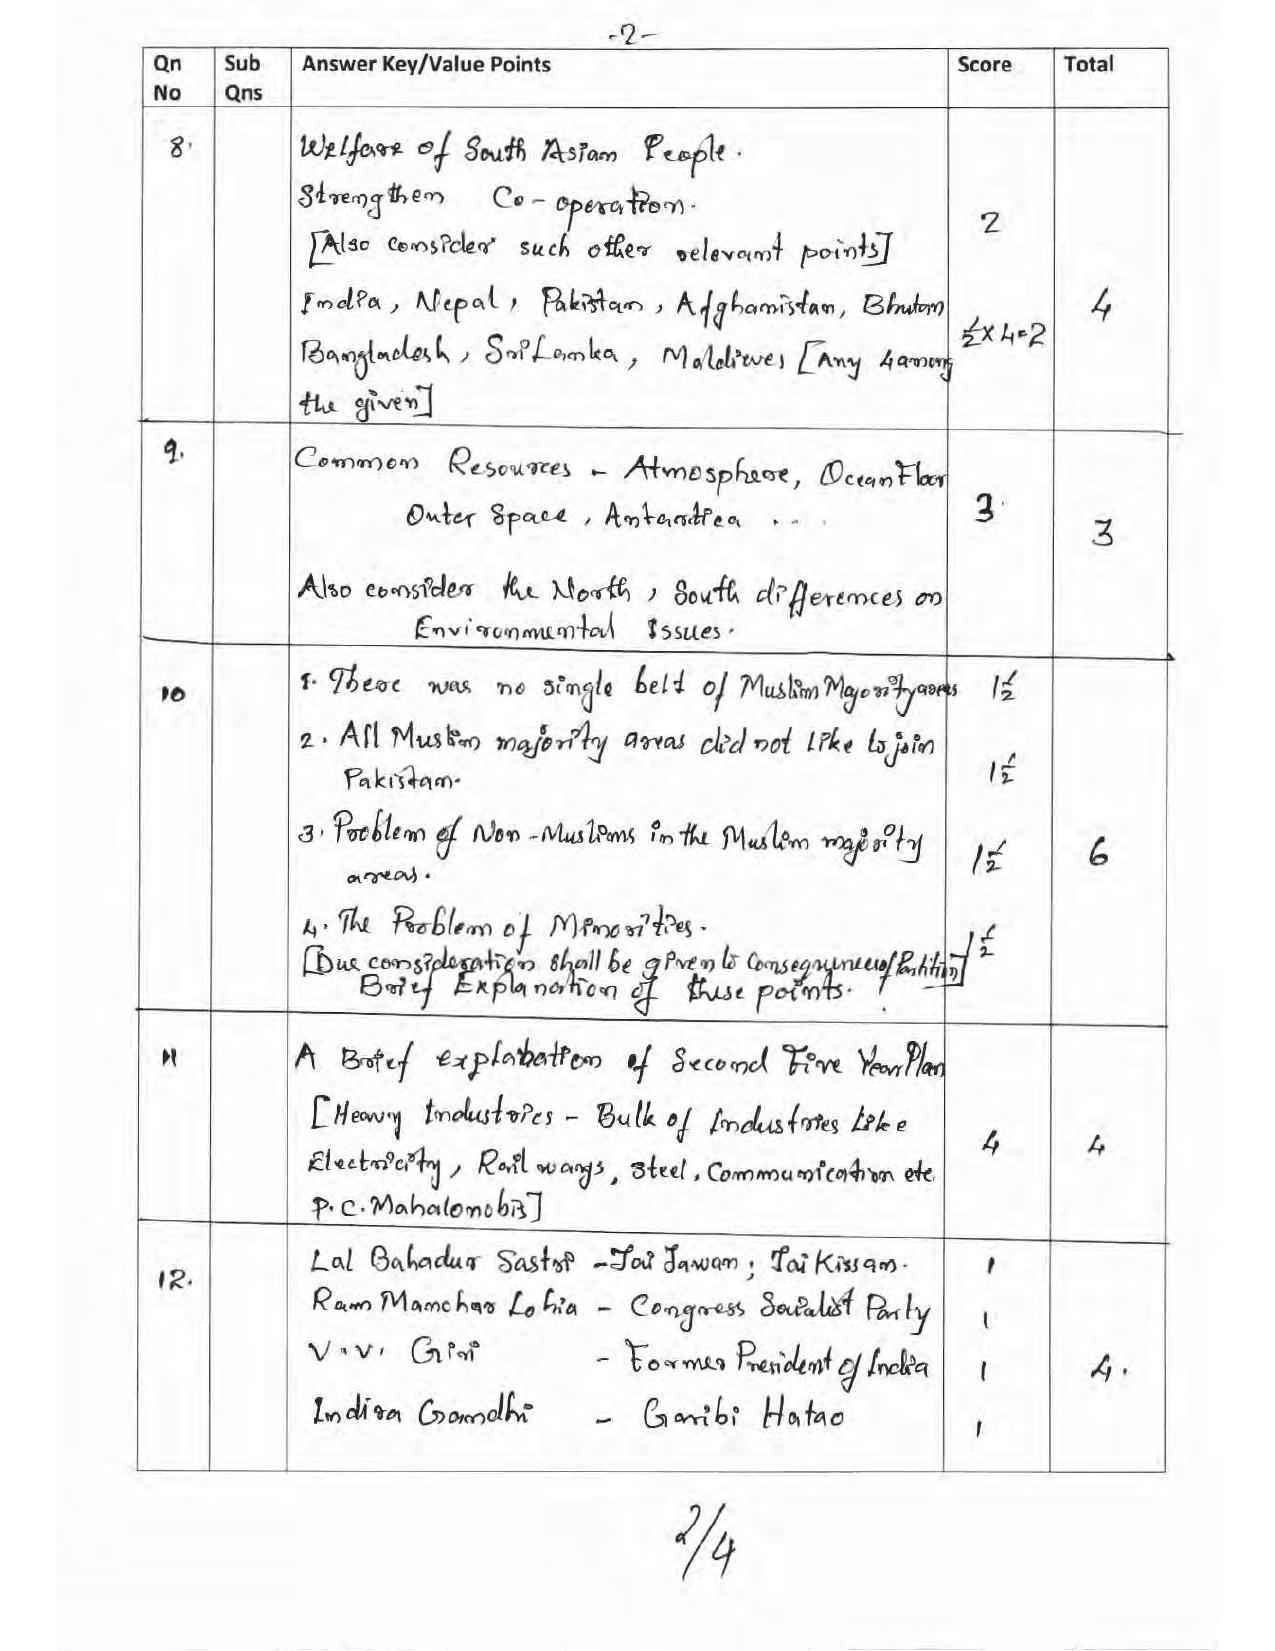 -2-
Qn No Sub Qns Answer Key/Value Points Score Total
8. Welfare of South Asian People.
Strengthen Co-operation.
[Also consider such other relevant points] 2
India, Nepal, Pakistan, Afghanistan, Bhutan 4
Bangladesh, Sri Lanka, Maldives [Any 4 among ½ x 4=2
the given]
9. Common Resources - Atmosphere, Ocean Floor
Outer Space, Antartica .... 3 3
Also consider the North, South differences on
Environmental Issues.
10 1. There was no single belt of Muslim Majority areas 1½
2. All Muslim majority areas did not like to join
Pakistan. 1½
3. Problem of Non-Muslims in the Muslim majority
areas. 1½ 6
4. The Problem of Minorities. 1½
[Due consideration shall be given to Consequences of Partition]
Brief Explanation of these points.
11 A Brief explabation of Second Five Year Plan
[Heavy Industries - Bulk of Industries Like
Electricity, Railways, Steel, Communication etc. 4 4
P.C. Mahalonobis]
12. Lal Bahadur Sastri - Jai Jawan; Jai Kissan. 1
Ram Manohar Lohia - Congress Socialist Party 1
V.V. Giri - Former President of India 1 4.
Indira Gandhi - Garibi Hatao 1
2/4